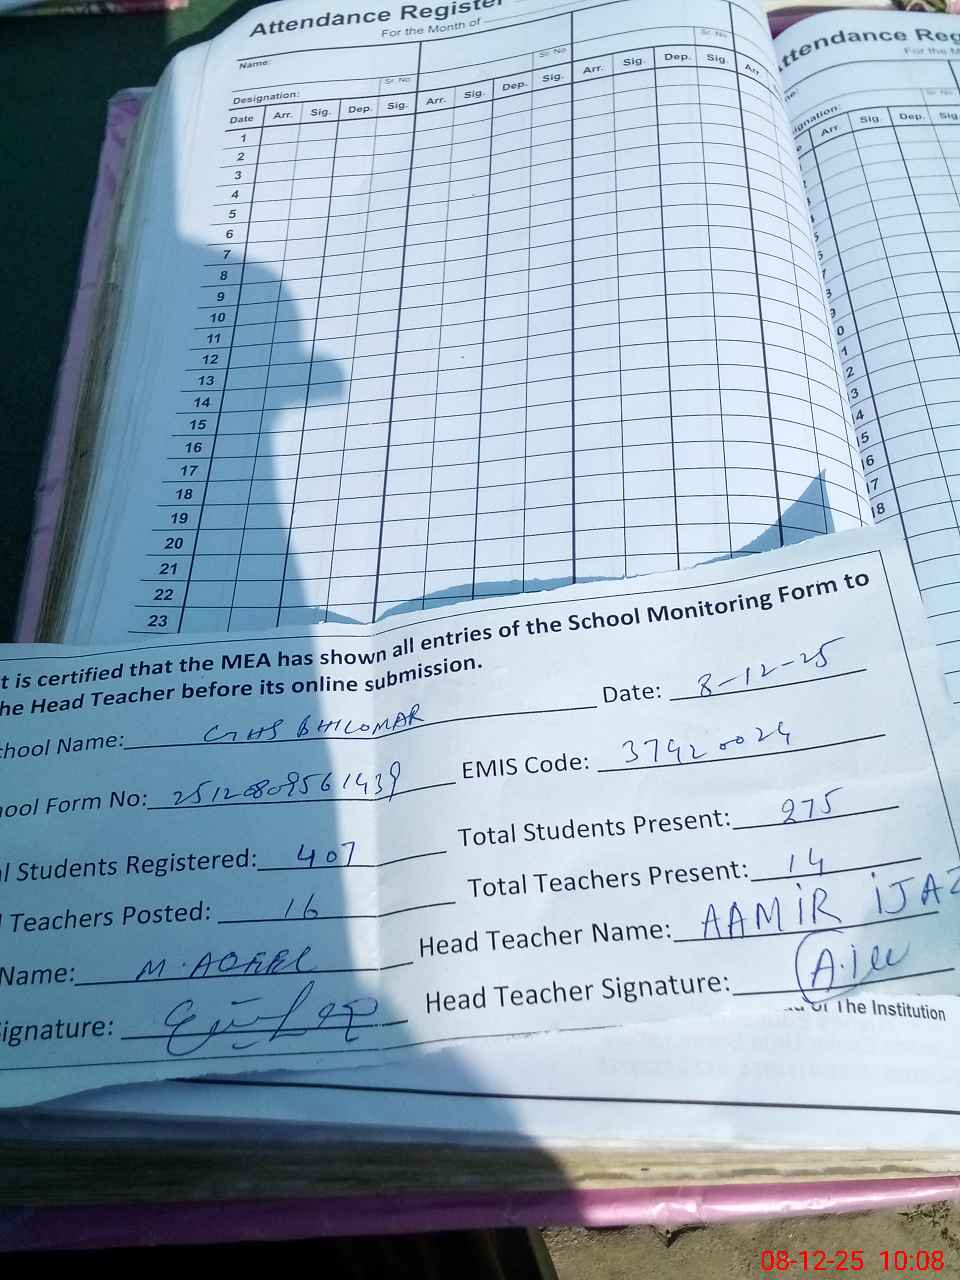 Attendance Register
For the Month of
Name:
Sr. No. Sr. No. Sr. No.
Designation:
Date Arr. Sig. Dep. Sig. Arr. Sig. Dep. Sig. Arr. Sig. Dep. Sig. Arr.
1
2
3
4
5
6
7
8
9
10
11
12
13
14
15
16
17
18
19
20
21
22
23
ttendance Reg
For the M
ne:
Sr. No.
ignation:
Arr. Sig. Dep. Sig.
5
6
7
8
9
0
1
2
3
4
15
16
17
18
t is certified that the MEA has shown all entries of the School Monitoring Form to
he Head Teacher before its online submission.
Date: 8-12-25
chool Name: GHS BHILOMAR
EMIS Code: 37420024
hool Form No: 251280809561439
l Students Registered: 407 Total Students Present: 275
l Teachers Posted: 16 Total Teachers Present: 14
Name: M. AQEEL Head Teacher Name: AAMIR IJAZ
ignature: Head Teacher Signature:
of The Institution
08-12-25 10:08